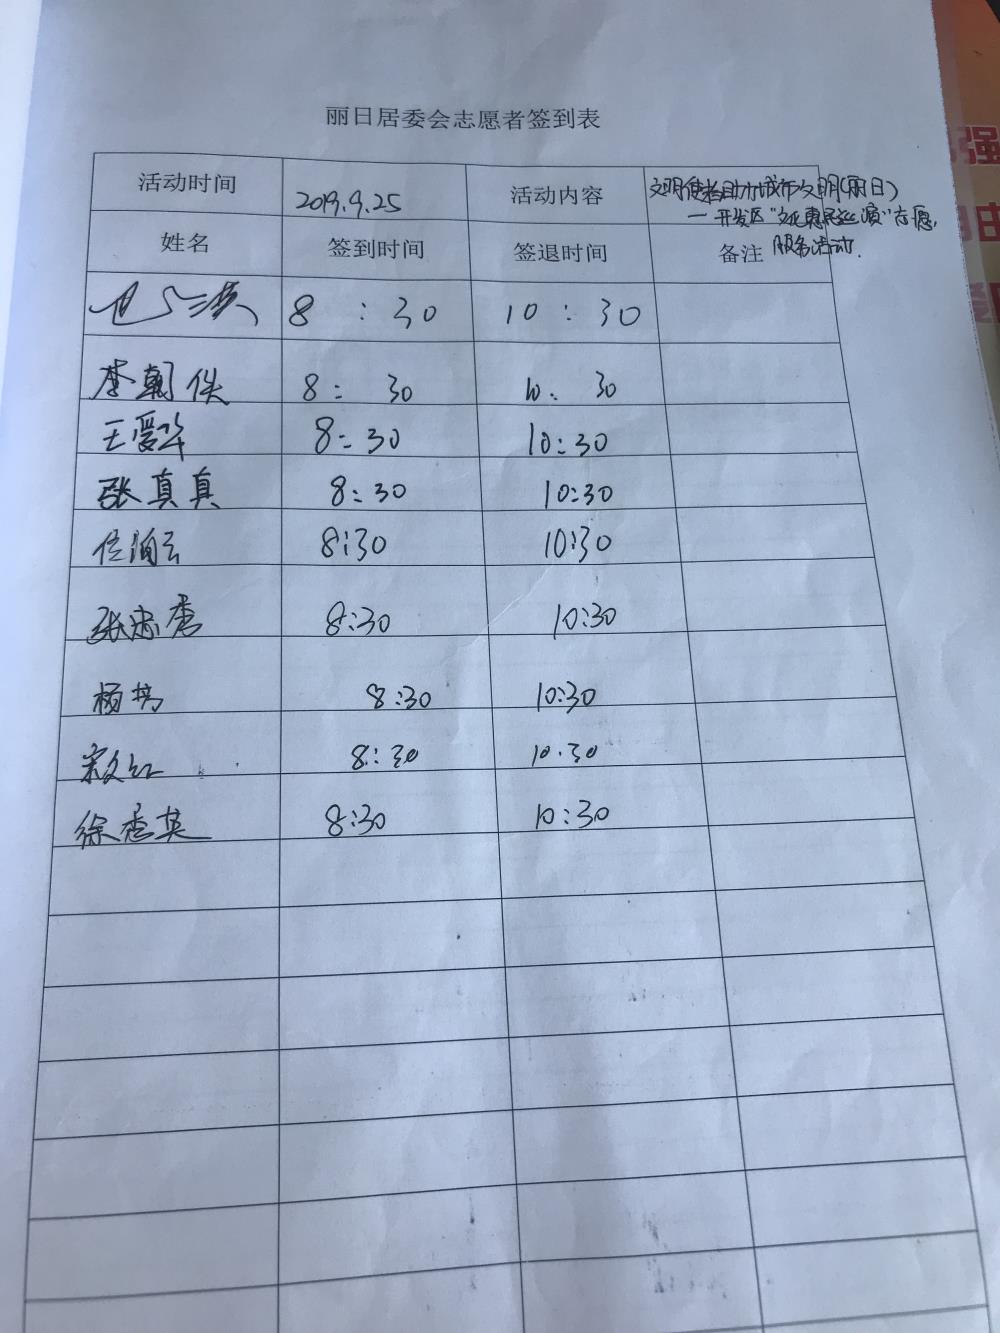 丽日居委会志愿者签到表
活动时间 2019.9.25 活动内容 文明使者助力城市文明(丽日)
一开发区“文化惠民巡演”志愿
服务活动.
姓名 签到时间 签退时间 备注
8:30 10:30
李朝 8:30 10:30
王爱华 8:30 10:30
张真真 8:30 10:30
8:30 10:30
张 秀 8:30 10:30
杨 8:30 10:30
宋文红 8:30 10:30
徐秀英 8:30 10:30
强
由